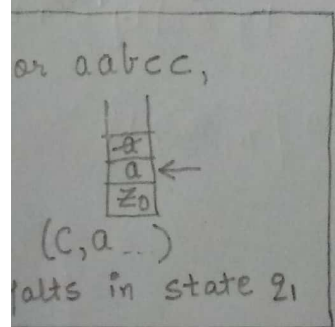 or aabcc,
a
a
Z0
(C,a...)
halts in state q1